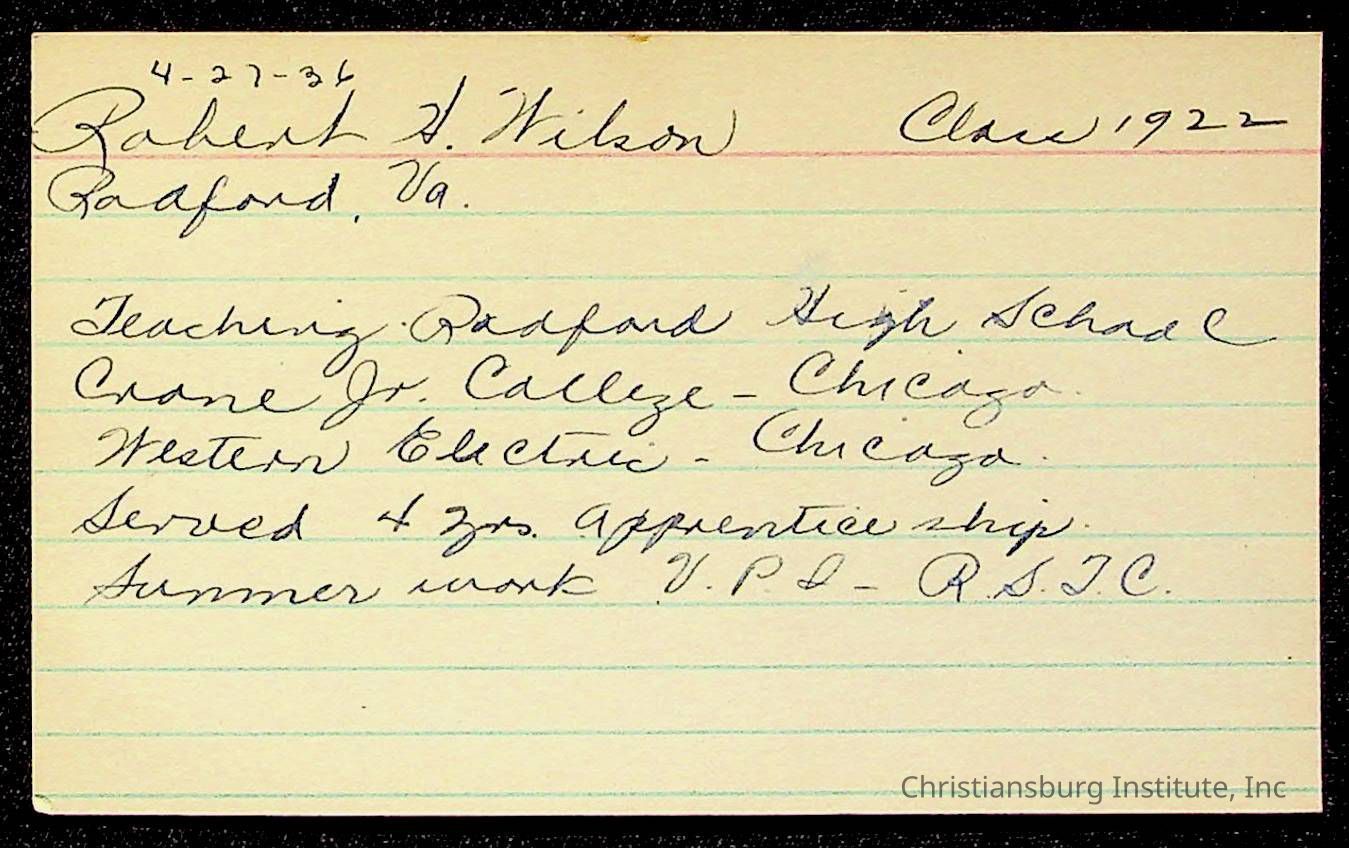 4-27-36
Robert H. Wilson Class 1922
Radford, Va.
Teaching Radford High School
Crane Jr. College - Chicago.
Western Electric - Chicago.
Served 4 yrs. apprentice ship.
Summer work V.P.I - R.S.T.C.
Christiansburg Institute, Inc